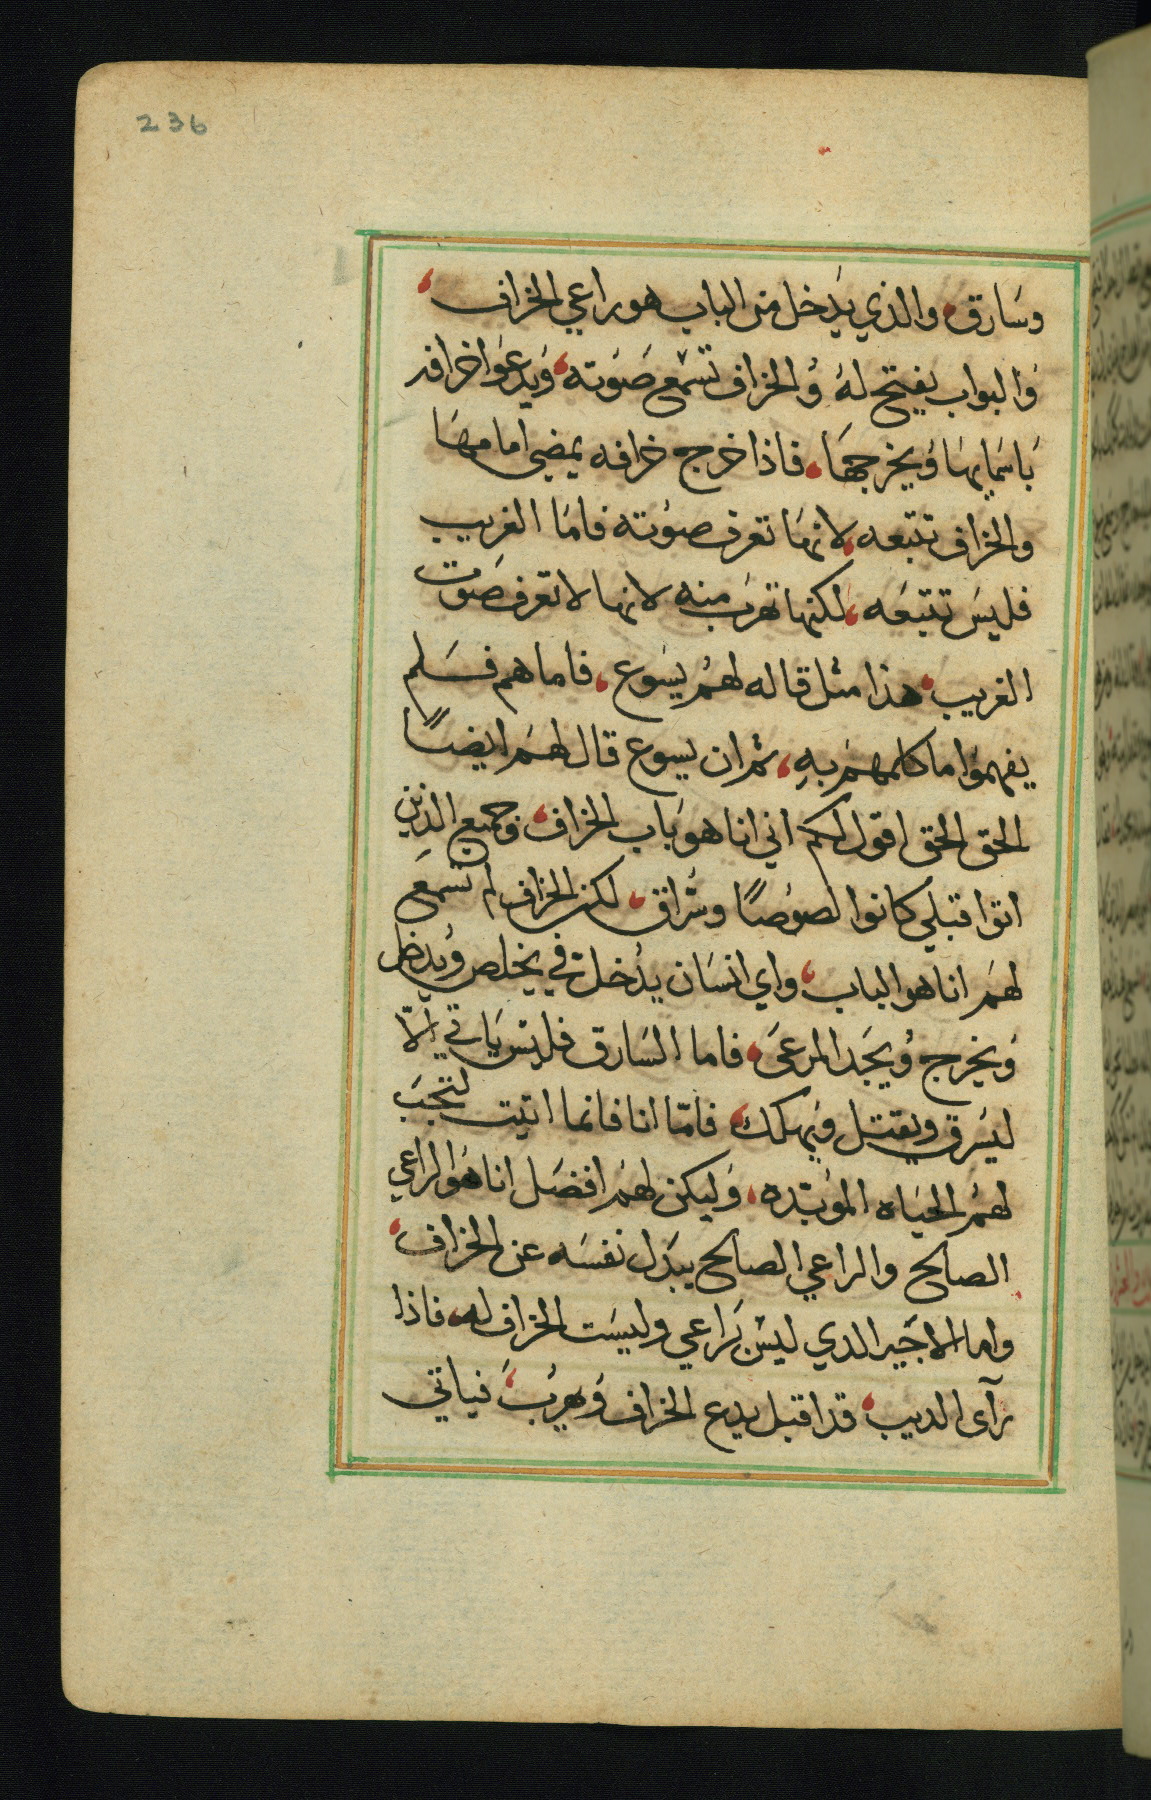 236
وسارق والذي يدخل من الباب هو راعي الخراف
والبواب يفتح له والخراف تسمع صوته ويدعوا خرافه
باسمايها ويخرجها فاذا خرج خرافه يمضي امامها
والخراف تتبعه لانها تعرف صوته فاما الغريب
فليس تتبعه لكنها تهرب منه لانها لا تعرف صوت
الغريب هذا مثل قاله لهم يسوع فاما هم فسلم
يفهموا ما كلمهم به ثم ان يسوع قال لهم ايضًا
الحق الحق اقول لكم اني انا هو باب الخراف وجميع الذين
اتوا قبلي كانوا لصوصًا وسراق لكن الخراف لم تسمع
لهم انا هو الباب واي انسان يدخل في يخلص ويدخل
ويخرج ويجد المرعى فاما السارق فليس ياتي الّا
ليسرق ويقتل ويهلك فامّا انا فانما اتيت لتجب
لهم الحياه الموبّده وليكن لهم افضل انا هو الراعي
الصالح والراعي الصالح يبدل نفسه عن الخراف
واما الاجير الدي ليس براعي وليست الخراف له فاذا
رآى الديب قد اقبل يدع الخراف ويهرب فياتي